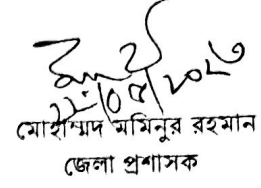 ২২/০৫/২০২৩
মোহাম্মদ মমিনুর রহমান
জেলা প্রশাসক